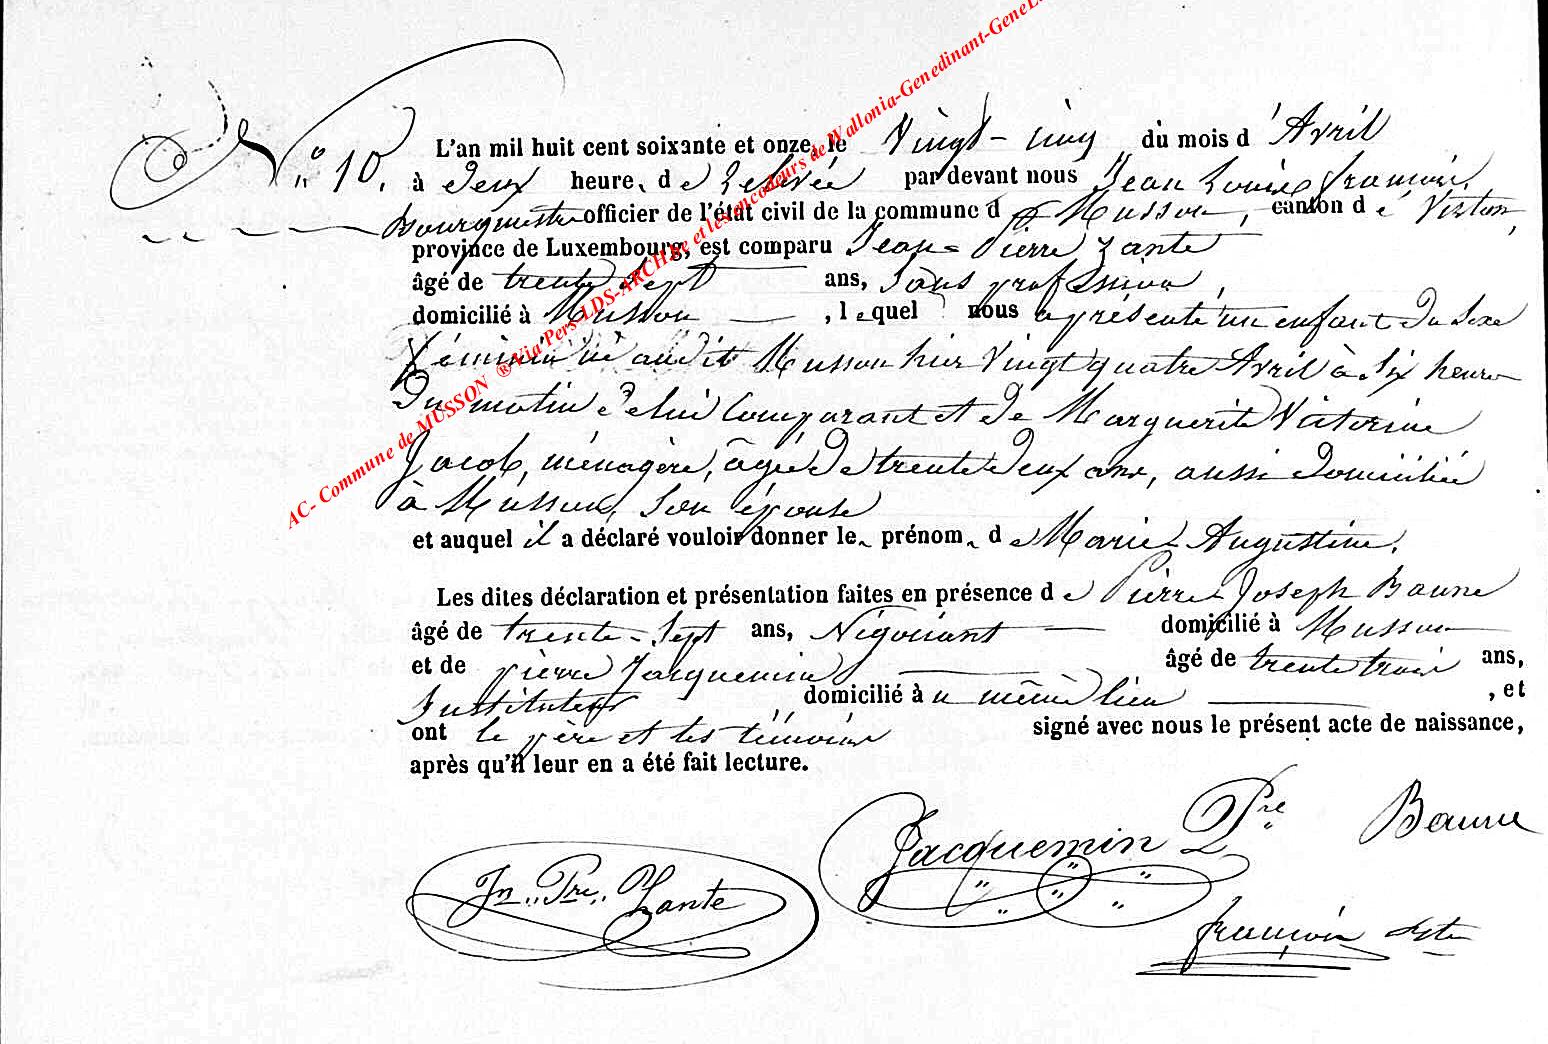 N° 10.
L'an mil huit cent soixante et onze, le Vingt-cinq du mois d'Avril
à deux heures de relevée par devant nous Jean Louis françois,
Bourgmestre officier de l'état civil de la commune de Musson, canton de Virton,
province de Luxembourg, est comparu Jean-Pierre Zante
âgé de trente sept ans, Sans profession,
domicilié à Musson, lequel nous a présenté un enfant du sexe
féminin né audit Musson hier Vingt quatre Avril à six heures
du matin de lui Comparant et de Marguerite Victorine
Jacob, ménagère, âgée de trente deux ans, aussi domiciliée
à Musson, son épouse
et auquel il a déclaré vouloir donner les prénoms de Marie-Augustine.
Les dites déclaration et présentation faites en présence de Pierre-Joseph Baune
âgé de trente-sept ans, Négociant domicilié à Musson
et de pierre Jacquemin âgé de trente trois ans,
Instituteur, domicilié au même lieu, et
ont le père et les témoins signé avec nous le présent acte de naissance,
après qu'il leur en a été fait lecture.
Jn. Pre. Zante
Jacquemin Pre
Baune
françois
AC- Commune de MUSSON ® Via Pers-LDS-ARCH Be et les encodeurs de Wallonia-Genedinant-GeneL